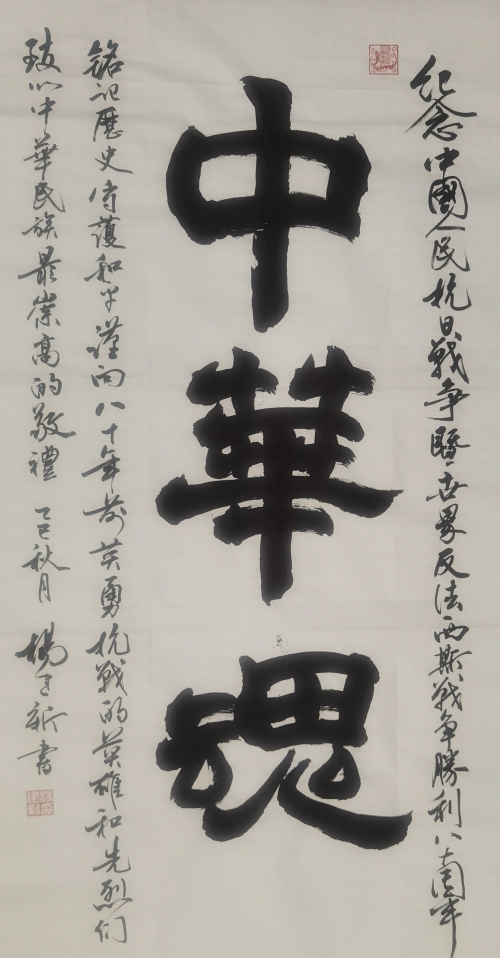 纪念中國人民抗日戰争暨世界反法西斯战争勝利八周年
中華魂
铭记歷史侍護和平谨向八十年前英勇抗戰的英雄和先烈们
致以中華民族最崇高的敬禮 乙巳秋月 楊建新書